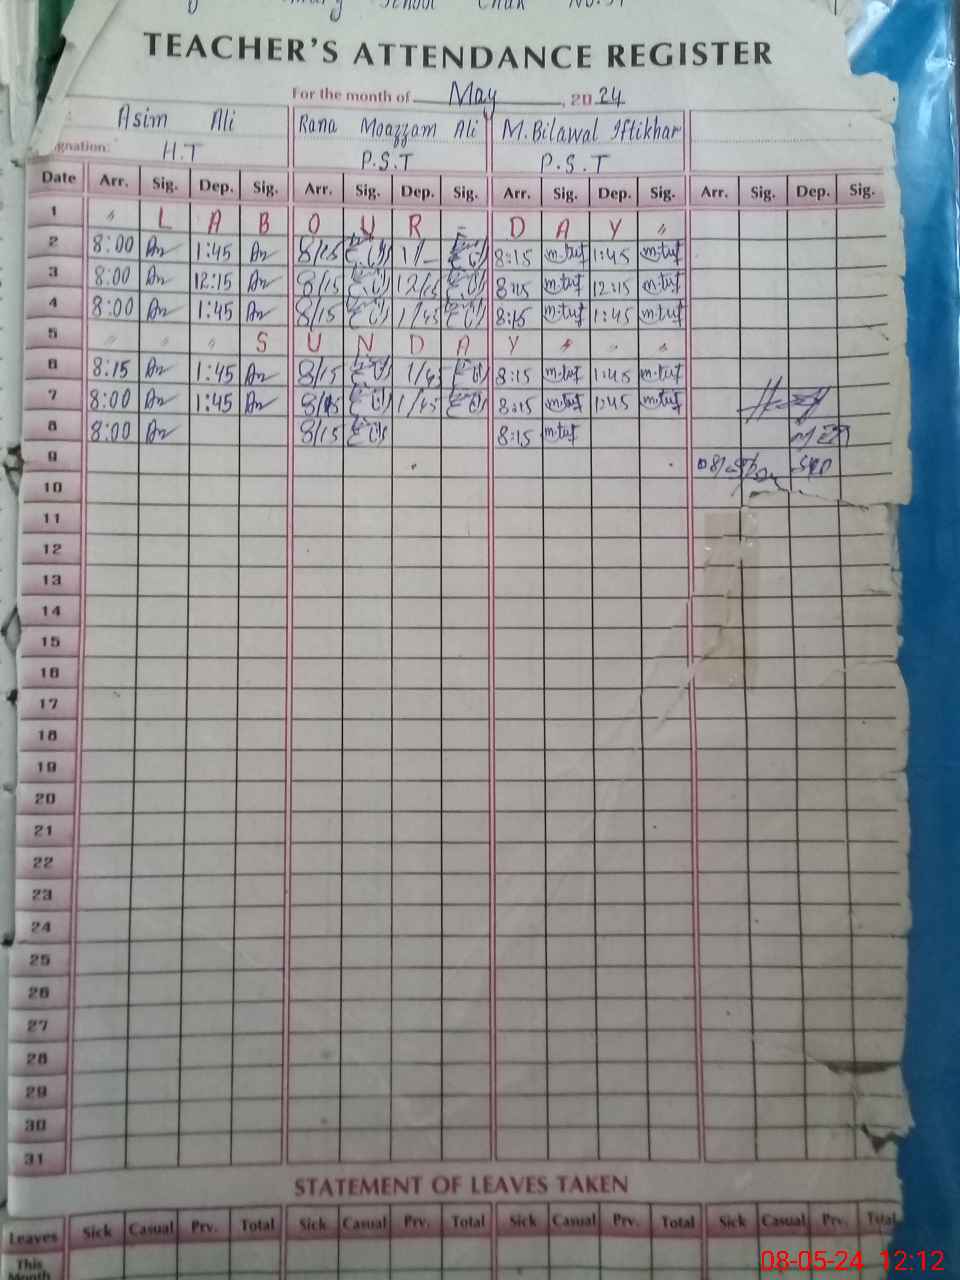 School Chak No.
TEACHER'S ATTENDANCE REGISTER
For the month of May, 2024
Asim Ali Rana Moazzam Ali M. Bilawal Iftikhar
gnation: H.T P.S.T P.S.T
Date Arr. Sig. Dep. Sig. Arr. Sig. Dep. Sig. Arr. Sig. Dep. Sig. Arr. Sig. Dep. Sig.
1 " L A B O U R - D A Y "
2 8:00 1:45 8/15 1/- 8:15 m.tuf 1:45 m.tuf
3 8:00 12:15 8/15 12/15 8:15 m.tuf 12:15 m.tuf
4 8:00 1:45 8/15 1/45 8:15 m.tuf 1:45 m.tuf
5 " " " S U N D A Y " " "
6 8:15 1:45 8/15 1/45 8:15 m.tuf 1:45 m.tuf
7 8:00 1:45 8/15 1/45 8:15 m.tuf 1:45 m.tuf
8 8:00 8/15 8:15 m.tuf
9
10
11
12
13
14
15
16
17
18
19
20
21
22
23
24
25
26
27
28
29
30
31
STATEMENT OF LEAVES TAKEN
Leaves Sick Casual Prv. Total Sick Casual Prv. Total Sick Casual Prv. Total Sick Casual Prv. Total
This
Month
08-05-24 12:12